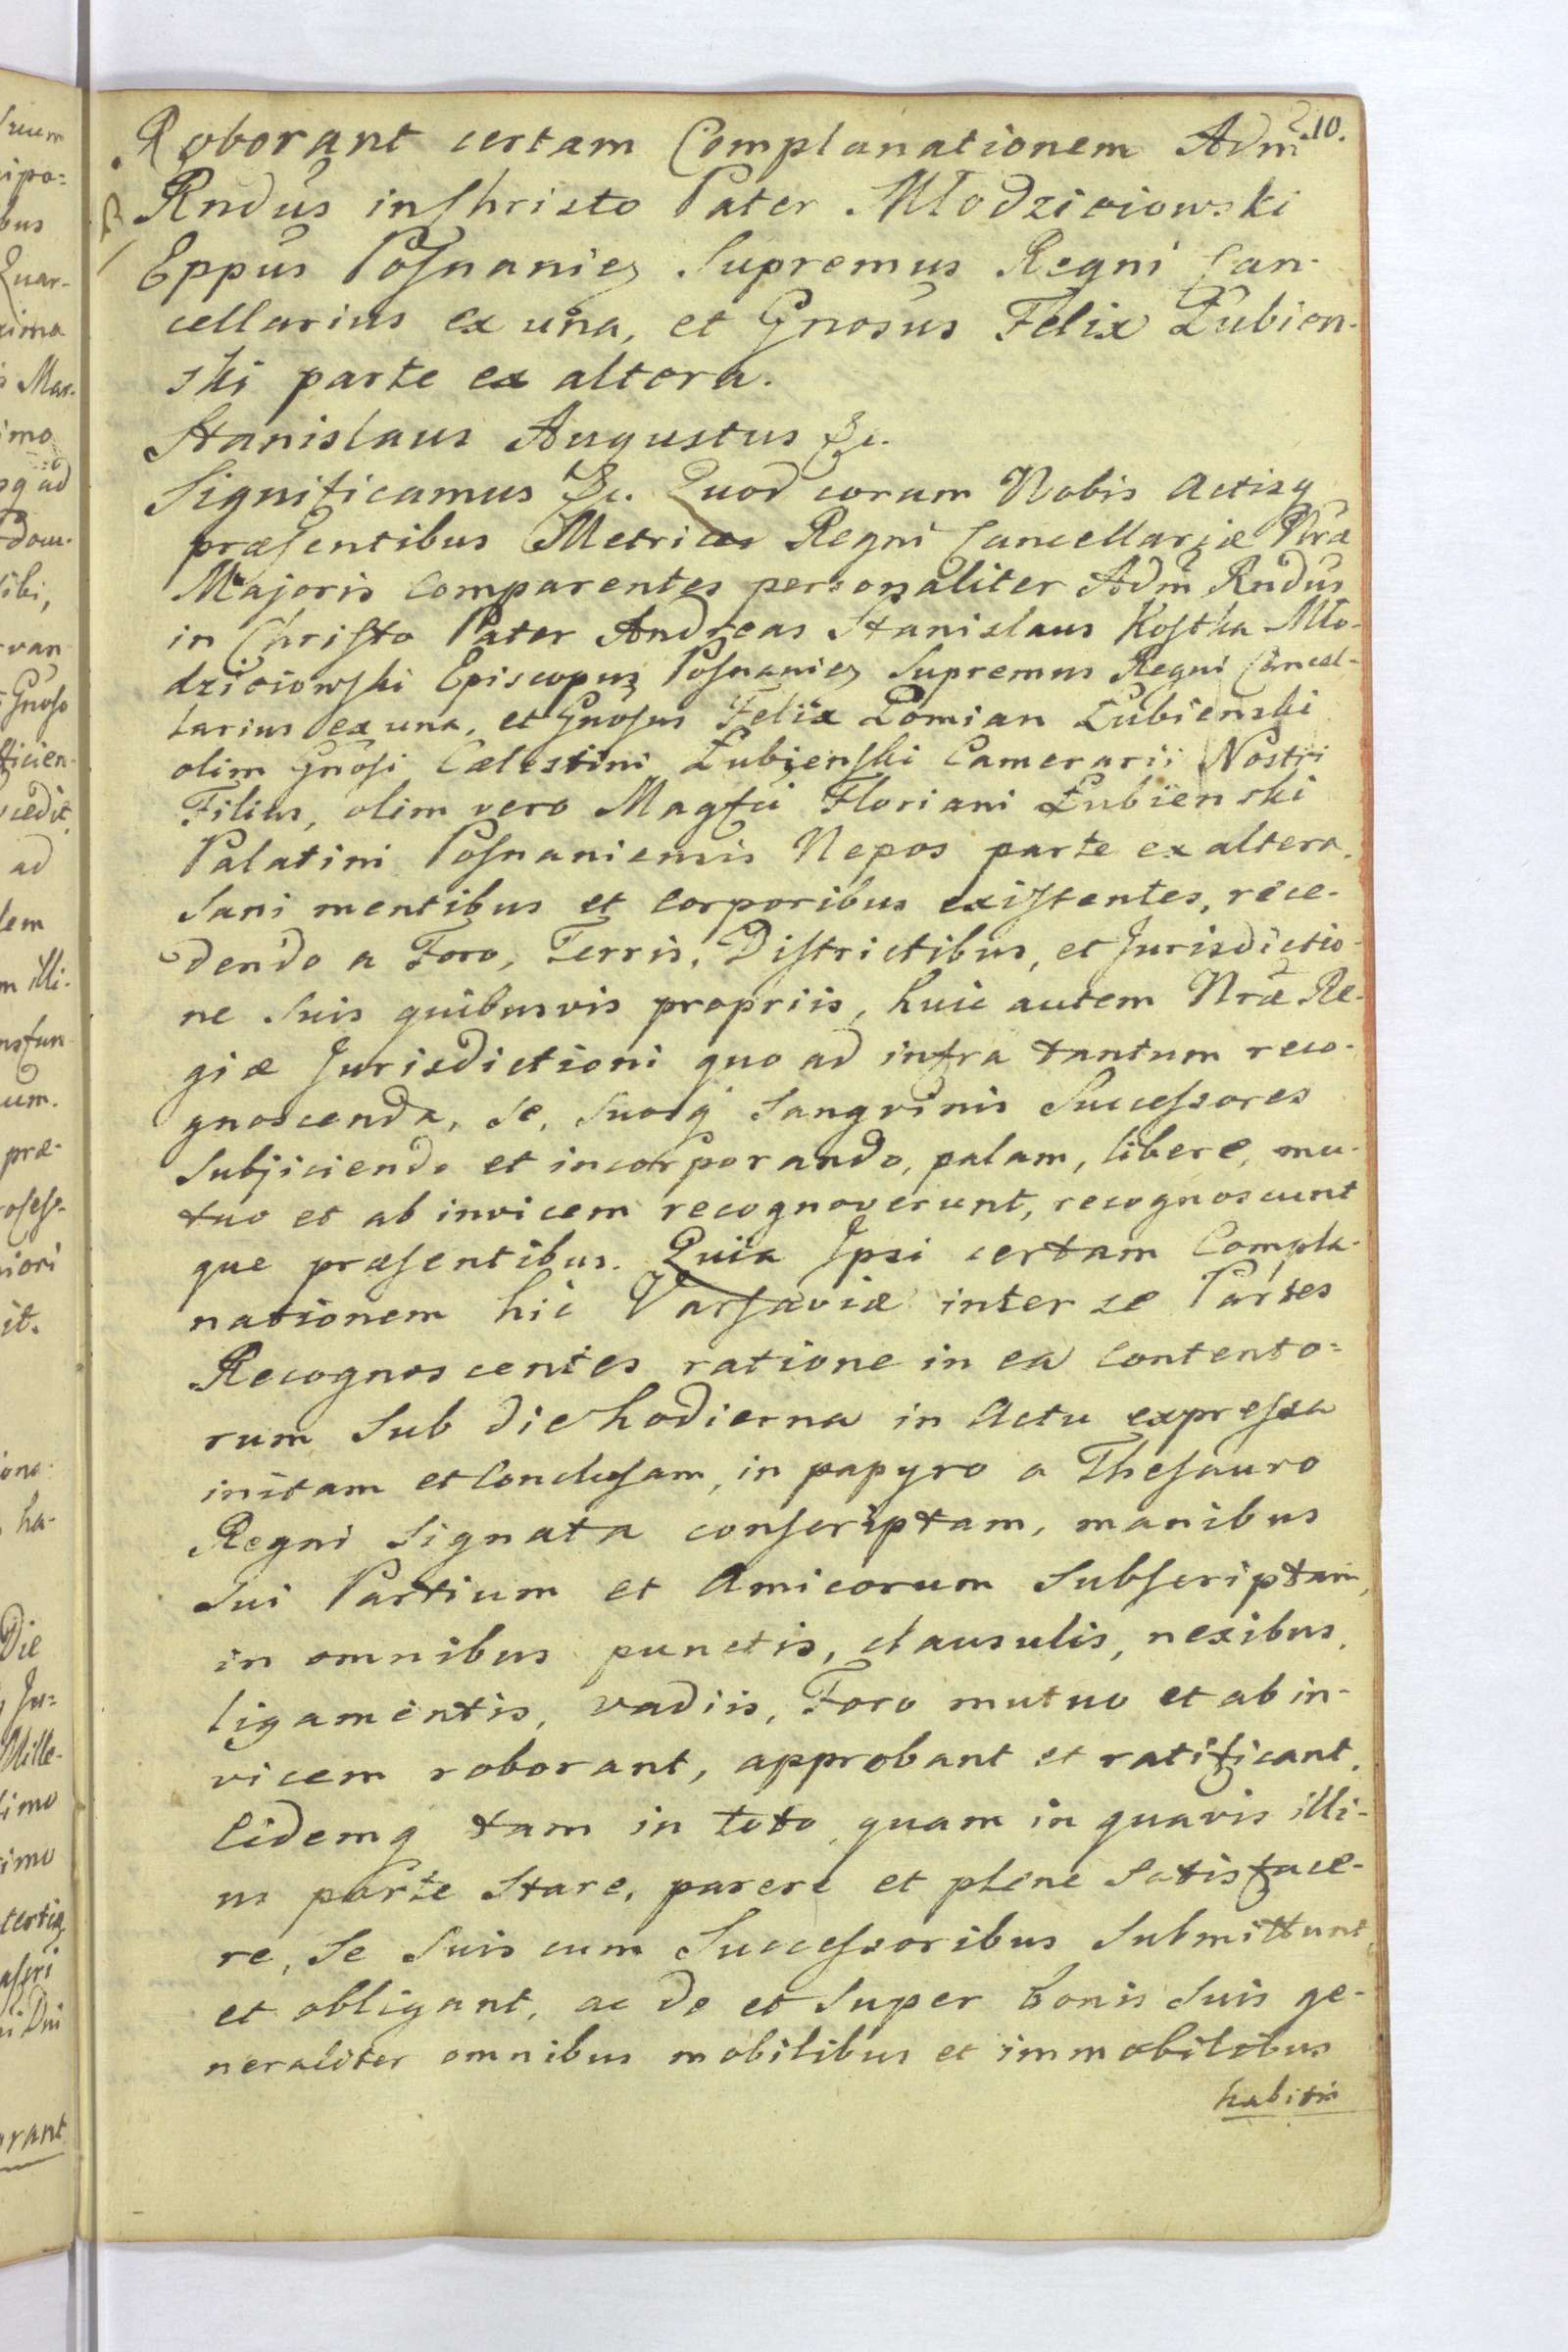 10.
Roborant certam Complanationem Adm̃
Rndus in Christo Pater Młodzieiowski
Eppus Posnanies Supremus Regni Can-
cellarius ex una, et Gnosus Felix Łubien-
ski parte ex altera.
Stanislaus Augustus &c.
Significamus &c. Quod coram Nobis Actisq
præsentibus Metrices Regni Cancellariæ Nrã
Majoris Comparentes personaliter Adm̃ Rndus
in Christo Pater Andreas Stanislaus Kostka Mło-
dzieiowski Episcopus Posnanies Supremus Regni Cancel-
larius ex una, et Gnosus Felix Pomian Łubienski
olim Gnosi Cælestini Łubienski Camerarii Nostri
Filius, olim vero Magfci Floriani Łubienski
Palatini Posnaniensis Nepos parte ex altera.
Sani mentibus et Corporibus existentes, rece-
dendo a Foro, Terris, Districtibus, et Jurisdictio-
ne Suis quibusvis propriis, huic autem Nræ Re-
giæ Jurisdictioni quo ad infra tantum reco-
gnoscenda, Se, Suosq Sangvinis Successores
Subjiciendo et incorporando, palam, libere, mu-
tuo et ab invicem recognoverunt, recognoscunt
que præsentibus. Quia Ipsi certam Compla-
nationem hic Varsaviæ inter se Partes
Recognoscentes ratione in ea Contento=
rum Sub die hodierna in Actu expressa
initam et Conclusam, in papyro a Thesauro
Regni Signata conscriptam, manibus
Sui Partium et Amicorum Subscriptam,
in omnibus punctis, clausulis, nexibus,
ligamentis, vadiis, Foro mutuo et ab in-
vicem roborant, approbant et ratificant.
Eidemq tam in toto quam in quavis illi-
us parte Stare, parere et plene Satisface-
re, Se Suis cum Successoribus Submittunt
et obligant, ac de et Super bonis Suis ge-
neraliter omnibus mobilibus et immobilibus
habitis